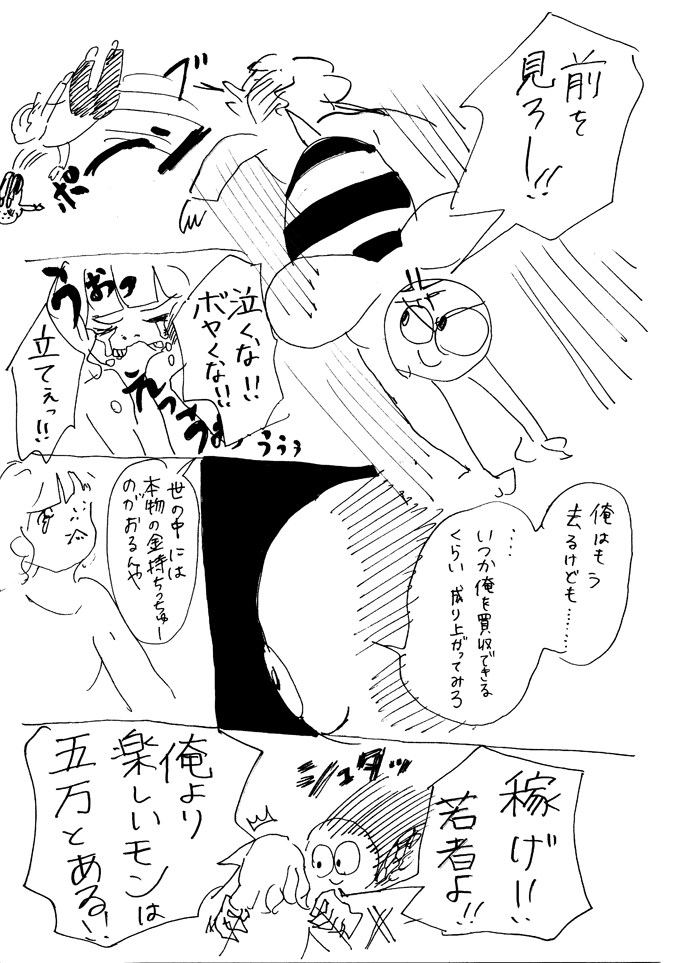 前を
見ろー!!
ブ
ーン
ポ
泣くな!!
ボヤくな!!
うおっ
えっ
うぅぅ
立てぇっ!!
俺はもう
去るけども………
……
いつか俺を買収できる
くらい成り上がってみろ
世の中には
本物の金持ちっちゅー
のがおるんや
稼げ!!
若者よ!!
シュタッ
俺より
楽しいモンは
五万とある!!